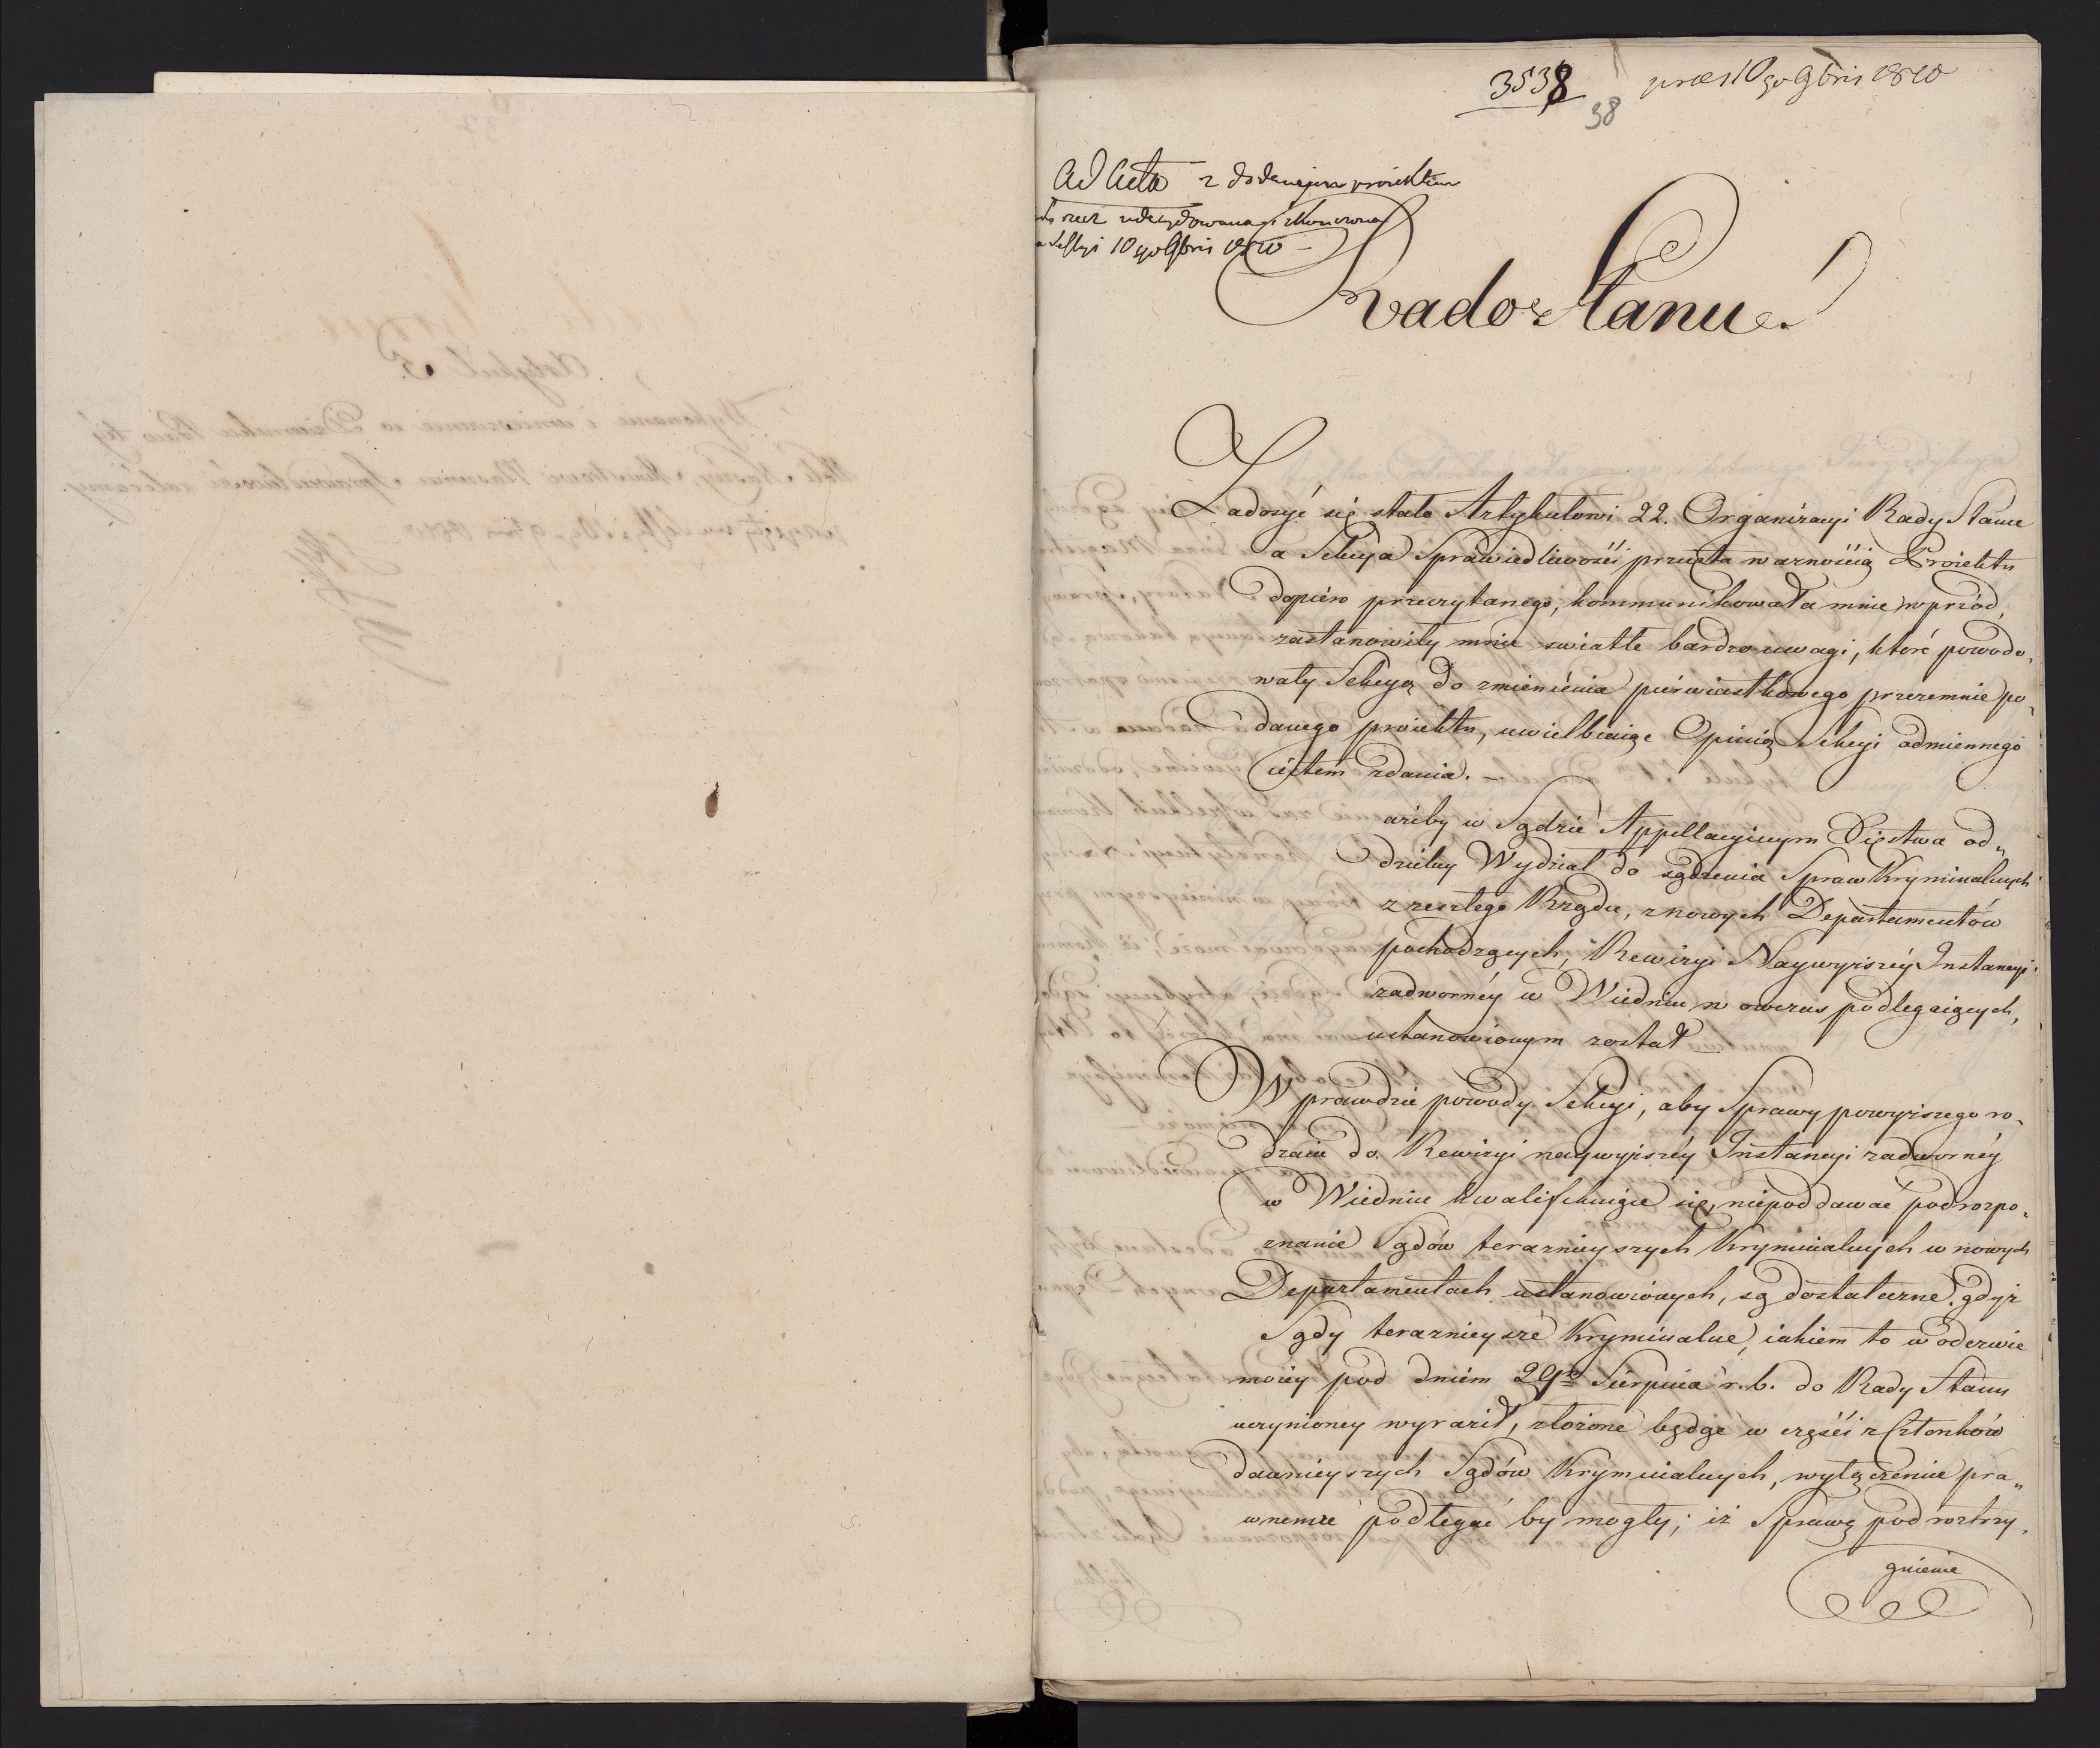 3538
38
præs 10go 9bris 1810
Ad Acta z dodanym proiektem
rzecz udecydowana i skończona
Sessyi 10go 9bris 1810 –
Rado Stanu!
Zadosyć się stało Artykułowi 22. Organizacyi Rady Stanu
a Sekcya Sprawiedliwości przięta ważnością Proiektu
dopiéro przeczytanego, kommunikowała mnie wprzód,
zastanowiły mnie światłe bardzo uwagi, któré powodo„
wały Sekcyą do zmienienia pierwiastkowego przezemnie po„
danego proiektu, uwielbiaiąc Opinią Sekcyi odmiennego
iestem zdania. –
ażiby w Sądzie Appellacyinym Xięstwa od„
dzielny Wydział do sądzenia Spraw Kryminalnych
z zeszłego Rządu, z nowych Departamentów
pochodzących, Rewizyi Naywyiszéy Instancyi
zadwornéy w Wiedniu w owczas podlegaiących,
ustanowionym został
Wprawdzie powody Sekcyi, aby Sprawy powyiszego ro„
dzaiu do Rewizyi naywyiszéy Instancyi zadwornéy
w Wiedniu kwalifikuiące się, niepoddawać pod rozpo„
znanie Sądów teraznieyszych Kryminalnych w nowych
Departamentach ustanowionych, są dostateczne, gdyż
Sądy teraznieyszé Kryminalne, iakiem to w odezwie
moiéy pod dniem 29go Sierpnia r. b. do Rady Stanu
uczynioney wyraził, złożone będąc w części z Członków
dawnieyszych Sądów Kryminalnych, wyłączenie pra„
wnemże podlegać by mogły; iż Sprawę pod roztrzy„
gnienie